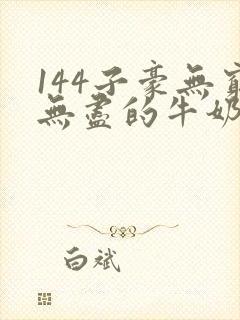 144子豪無窮
無盡的牛奶
白斌